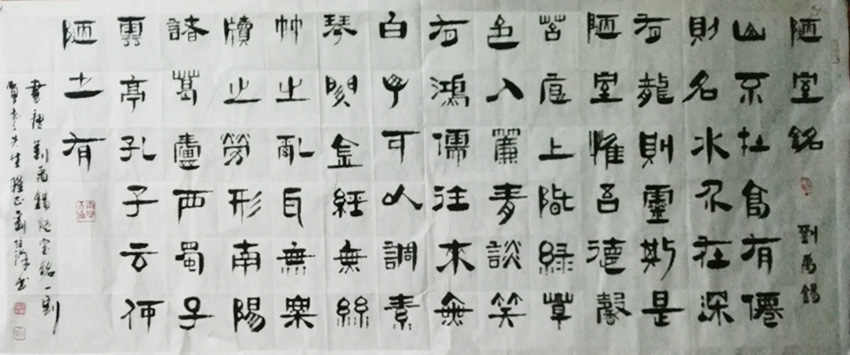 陋室銘 劉禹錫
山不在高有僊
則名水不在深
有龍則靈斯是
陋室惟吾德馨
苔痕上階綠草
色入簾青談笑
有鴻儒往來無
白丁可以調素
琴閱金經無絲
竹之亂耳無案
牘之勞形南陽
諸葛廬西蜀子
雲亭孔子云何
陋之有
書劉禹錫陋室銘一則
先生雅正劉書